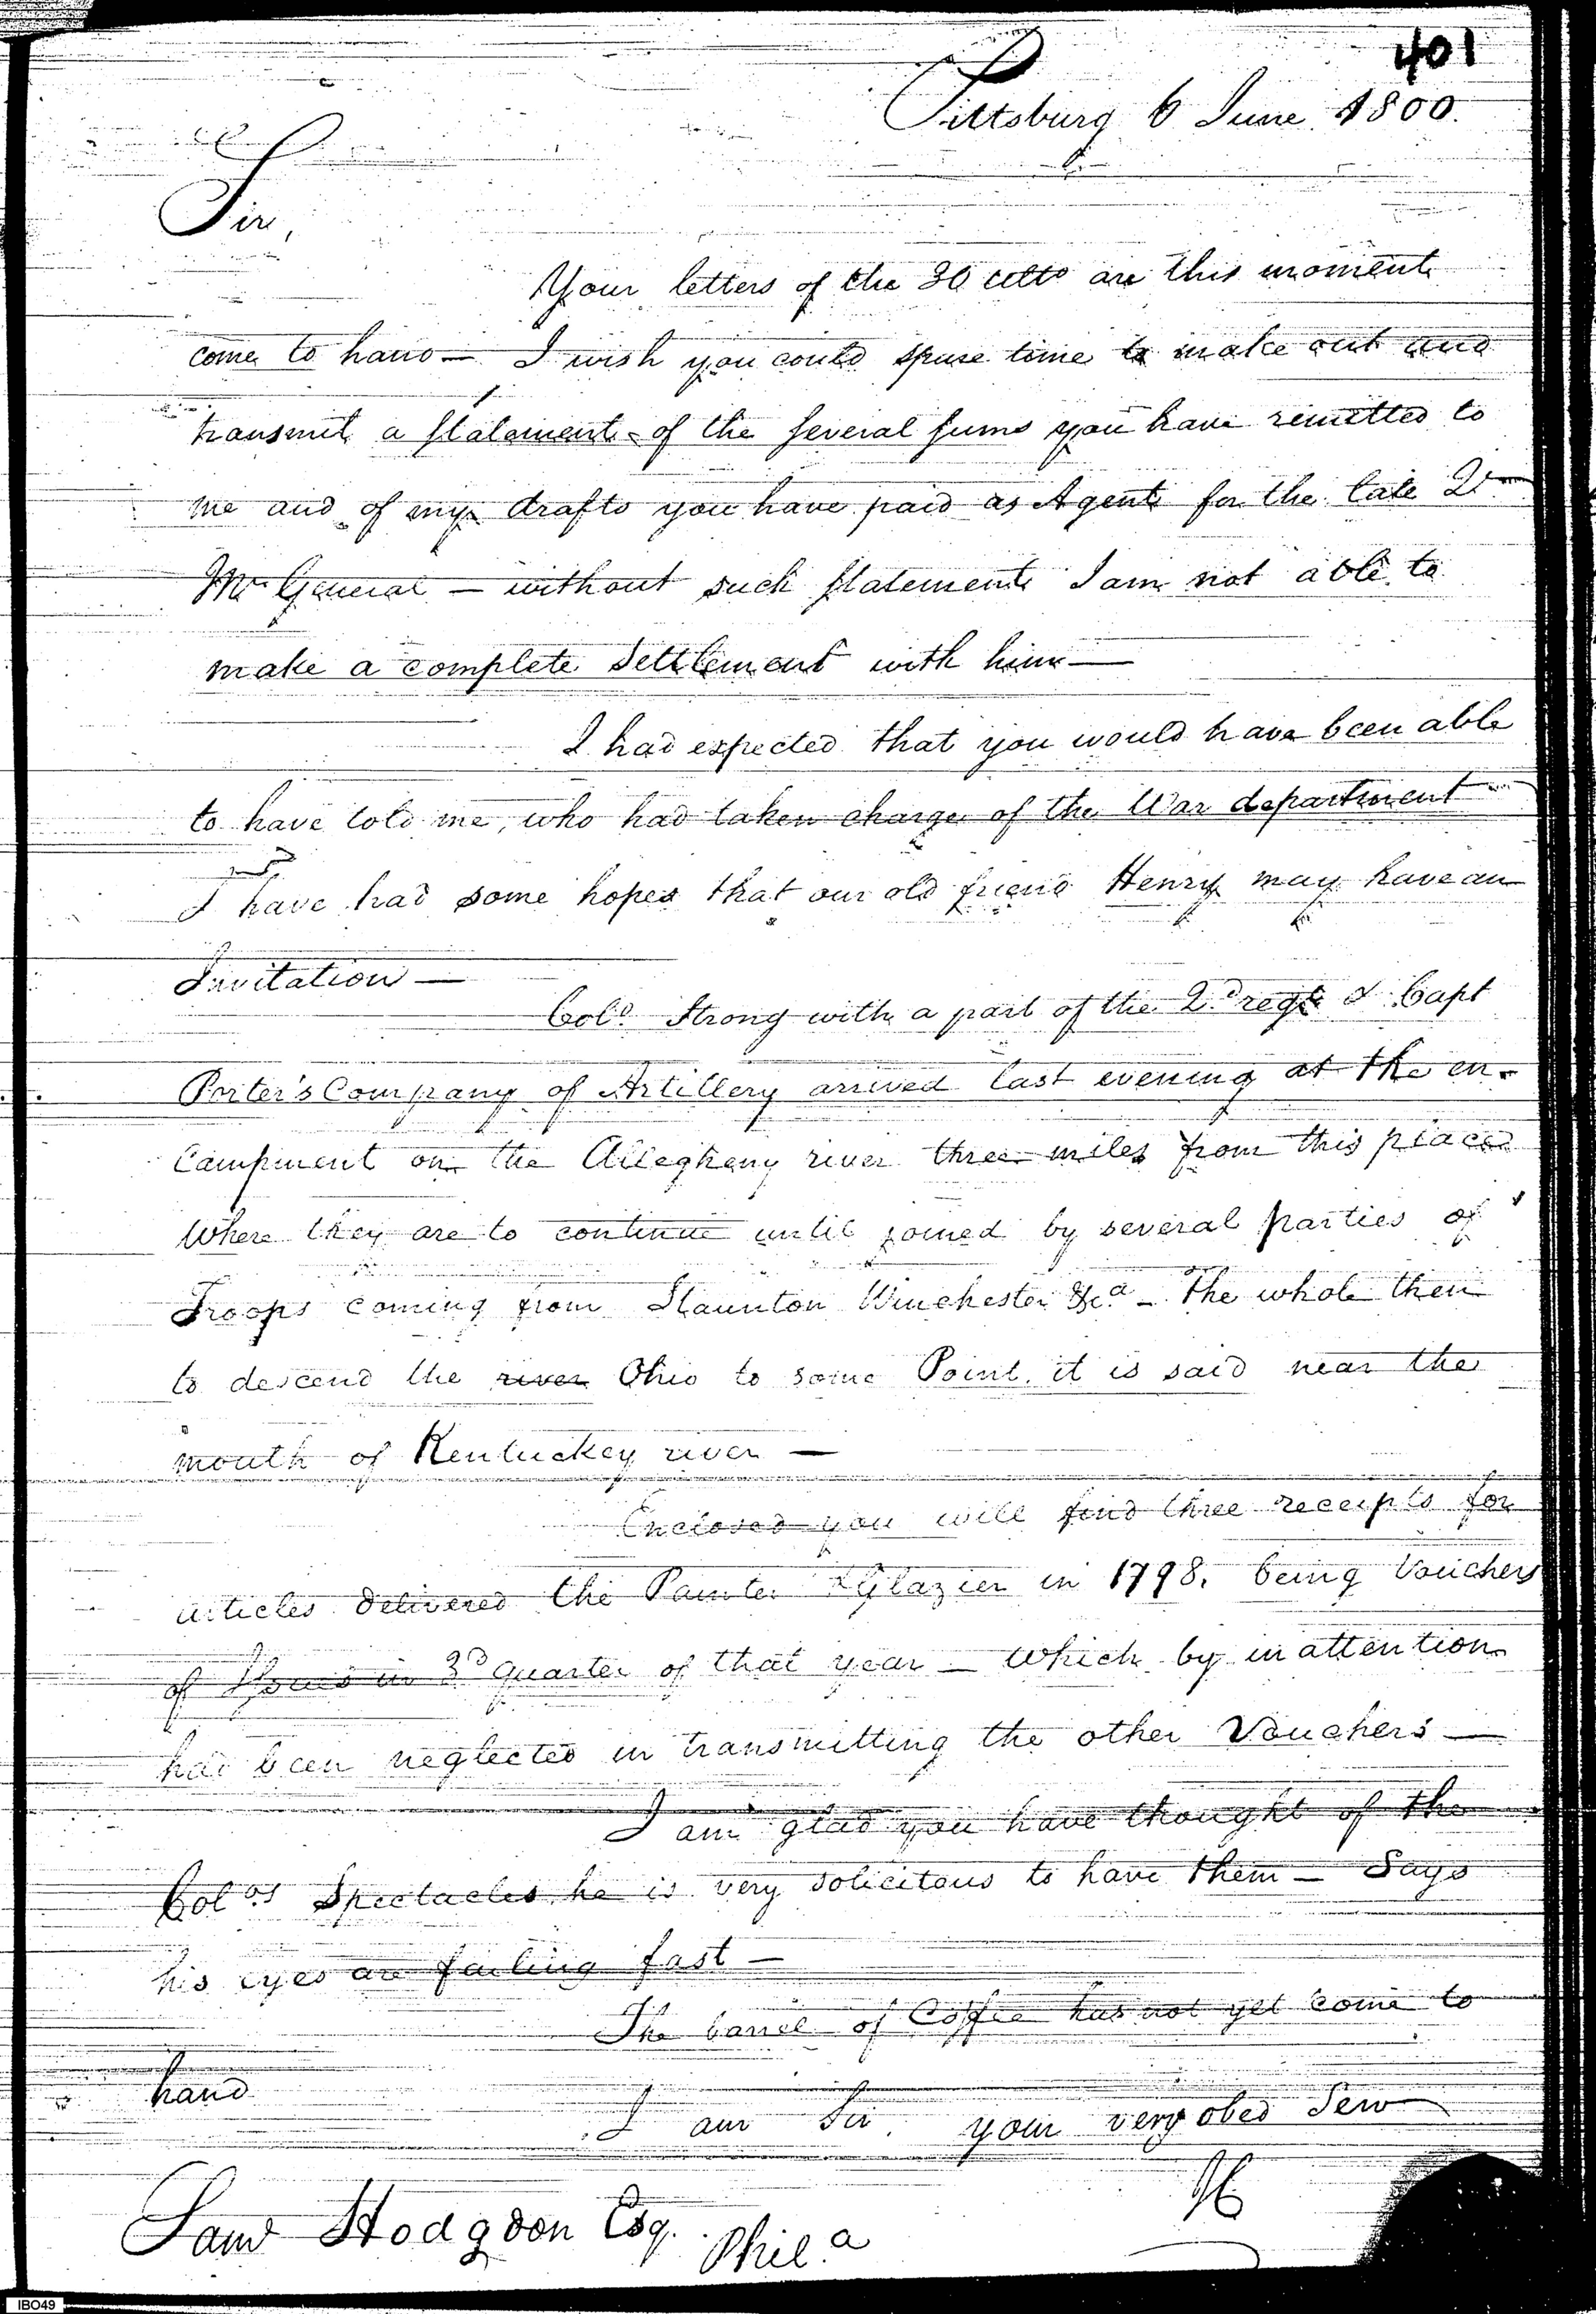 401
Pittsburg 6 June 1800.
Sir,
Your letters of the 30 ulto are this moment
come to hand — I wish you could spare time to make out and
transmit a statement of the several sums you have remitted to
me and of my drafts you have paid as Agent for the late Qr
Mr General — without such statement I am not able to
make a complete settlement with him —
I had expected that you would have been able
to have told me, who had taken charge of the War department
I have had some hopes that our old friend Henry may have an
Invitation —
Colo. Strong with a part of the 2d regt & Capt
Porter's Company of Artillery arrived last evening at the en-
campment on the Allegheny river three miles from this place
Where they are to continue until joined by several parties of
Troops coming from Staunton Winchester &c.a — The whole then
to descend the river Ohio to some Point, it is said near the
mouth of Kentuckey river —
Enclosed you will find three receipts for
articles delivered the Painter & Glazier in 1798. being Vouchers
of Stores in 3d quarter of that year — which by inattention
had been neglected in transmitting the other Vouchers —
I am glad you have thought of the
Colos Spectacles he is very solicitous to have them — Says
his eyes are failing fast —
The barrel of Coffee has not yet come to
hand
I am Sir. your very obed Serv
Saml Hodgdon Esq. Phil.a
IBO49